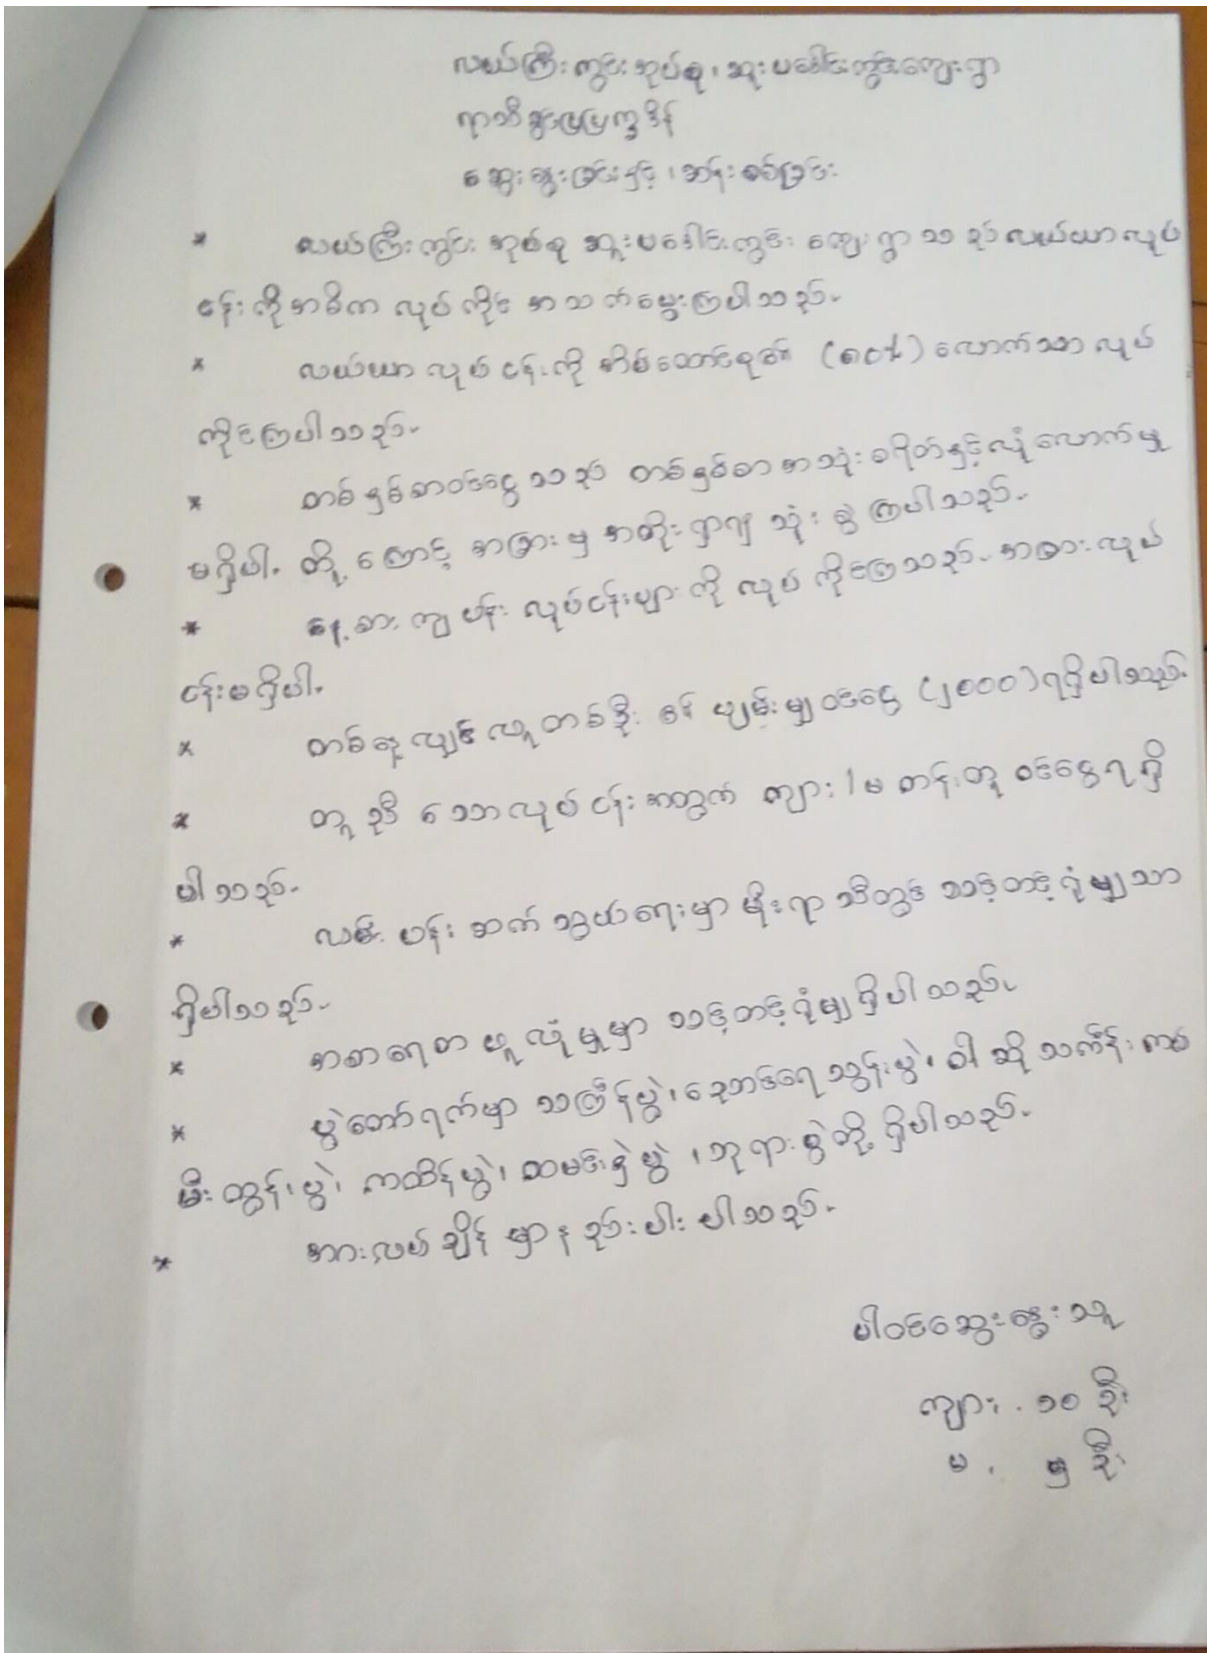 လယ်ကြီးကွင်းအုပ်စု၊ ဆူးပခေါင်းကွင်းကျေးရွာ
ရာသီခွင်ပြပြက္ခဒိန်
ဆွေးနွေးခြင်းနှင့်၊ ဆန်းစစ်ခြင်း
* လယ်ကြီးကွင်း အုပ်စု ဆူးပခေါင်းကွင်း ကျေးရွာသည် လယ်ယာလုပ်
ငန်းကို အဓိက လုပ်ကိုင် အသက်မွေးကြပါသည်။
* လယ်ယာ လုပ်ငန်းကို အိမ်ထောင်စု၏ (၈၀%) လောက်သာ လုပ်
ကိုင်ကြပါသည်။
* တစ်နှစ်စာဝင်ငွေသည် တစ်နှစ်စာ အသုံးစရိတ်နှင့်လုံလောက်မှု
မရှိပါ။ ထို့ကြောင့် အခြားမှ အတိုးရှာ၍ သုံးစွဲကြပါသည်။
* နေ့စား ကျပန်း လုပ်ငန်းများကို လုပ်ကိုင်ကြသည်။ အခြားလုပ်
ငန်းမရှိပါ။
* တစ်နေ့လျှင် လူတစ်ဦး ပျမ်းမျှဝင်ငွေ (၂၈၀၀) ရရှိပါသည်။
* တူညီသောလုပ်ငန်းအတွက် ကျား/မ တန်းတူ ဝင်ငွေရရှိ
ပါသည်။
* လမ်းပန်းဆက်သွယ်ရေးမှာ မိုးရာသီတွင် သင့်တင့်ရုံမျှသာ
ရှိပါသည်။
* အစာရေစာ ဖူလုံမှုမှာ သင့်တင့်ရုံမျှရှိပါသည်။
* ပွဲတော်ရက်မှာ သင်္ကြန်ပွဲ၊ ညောင်ရေသွန်းပွဲ၊ ဝါဆိုသင်္ကန်းကပ်
မီးထွန်းပွဲ၊ ကထိန်ပွဲ၊ ထမနဲပွဲ၊ ဘုရားပွဲတို့ရှိပါသည်။
* အားလပ်ချိန်မှာ နည်းပါးပါသည်။
ပါဝင်ဆွေးနွေးသူ
ကျား . ၁၀ ဦး
မ . ၅ ဦး